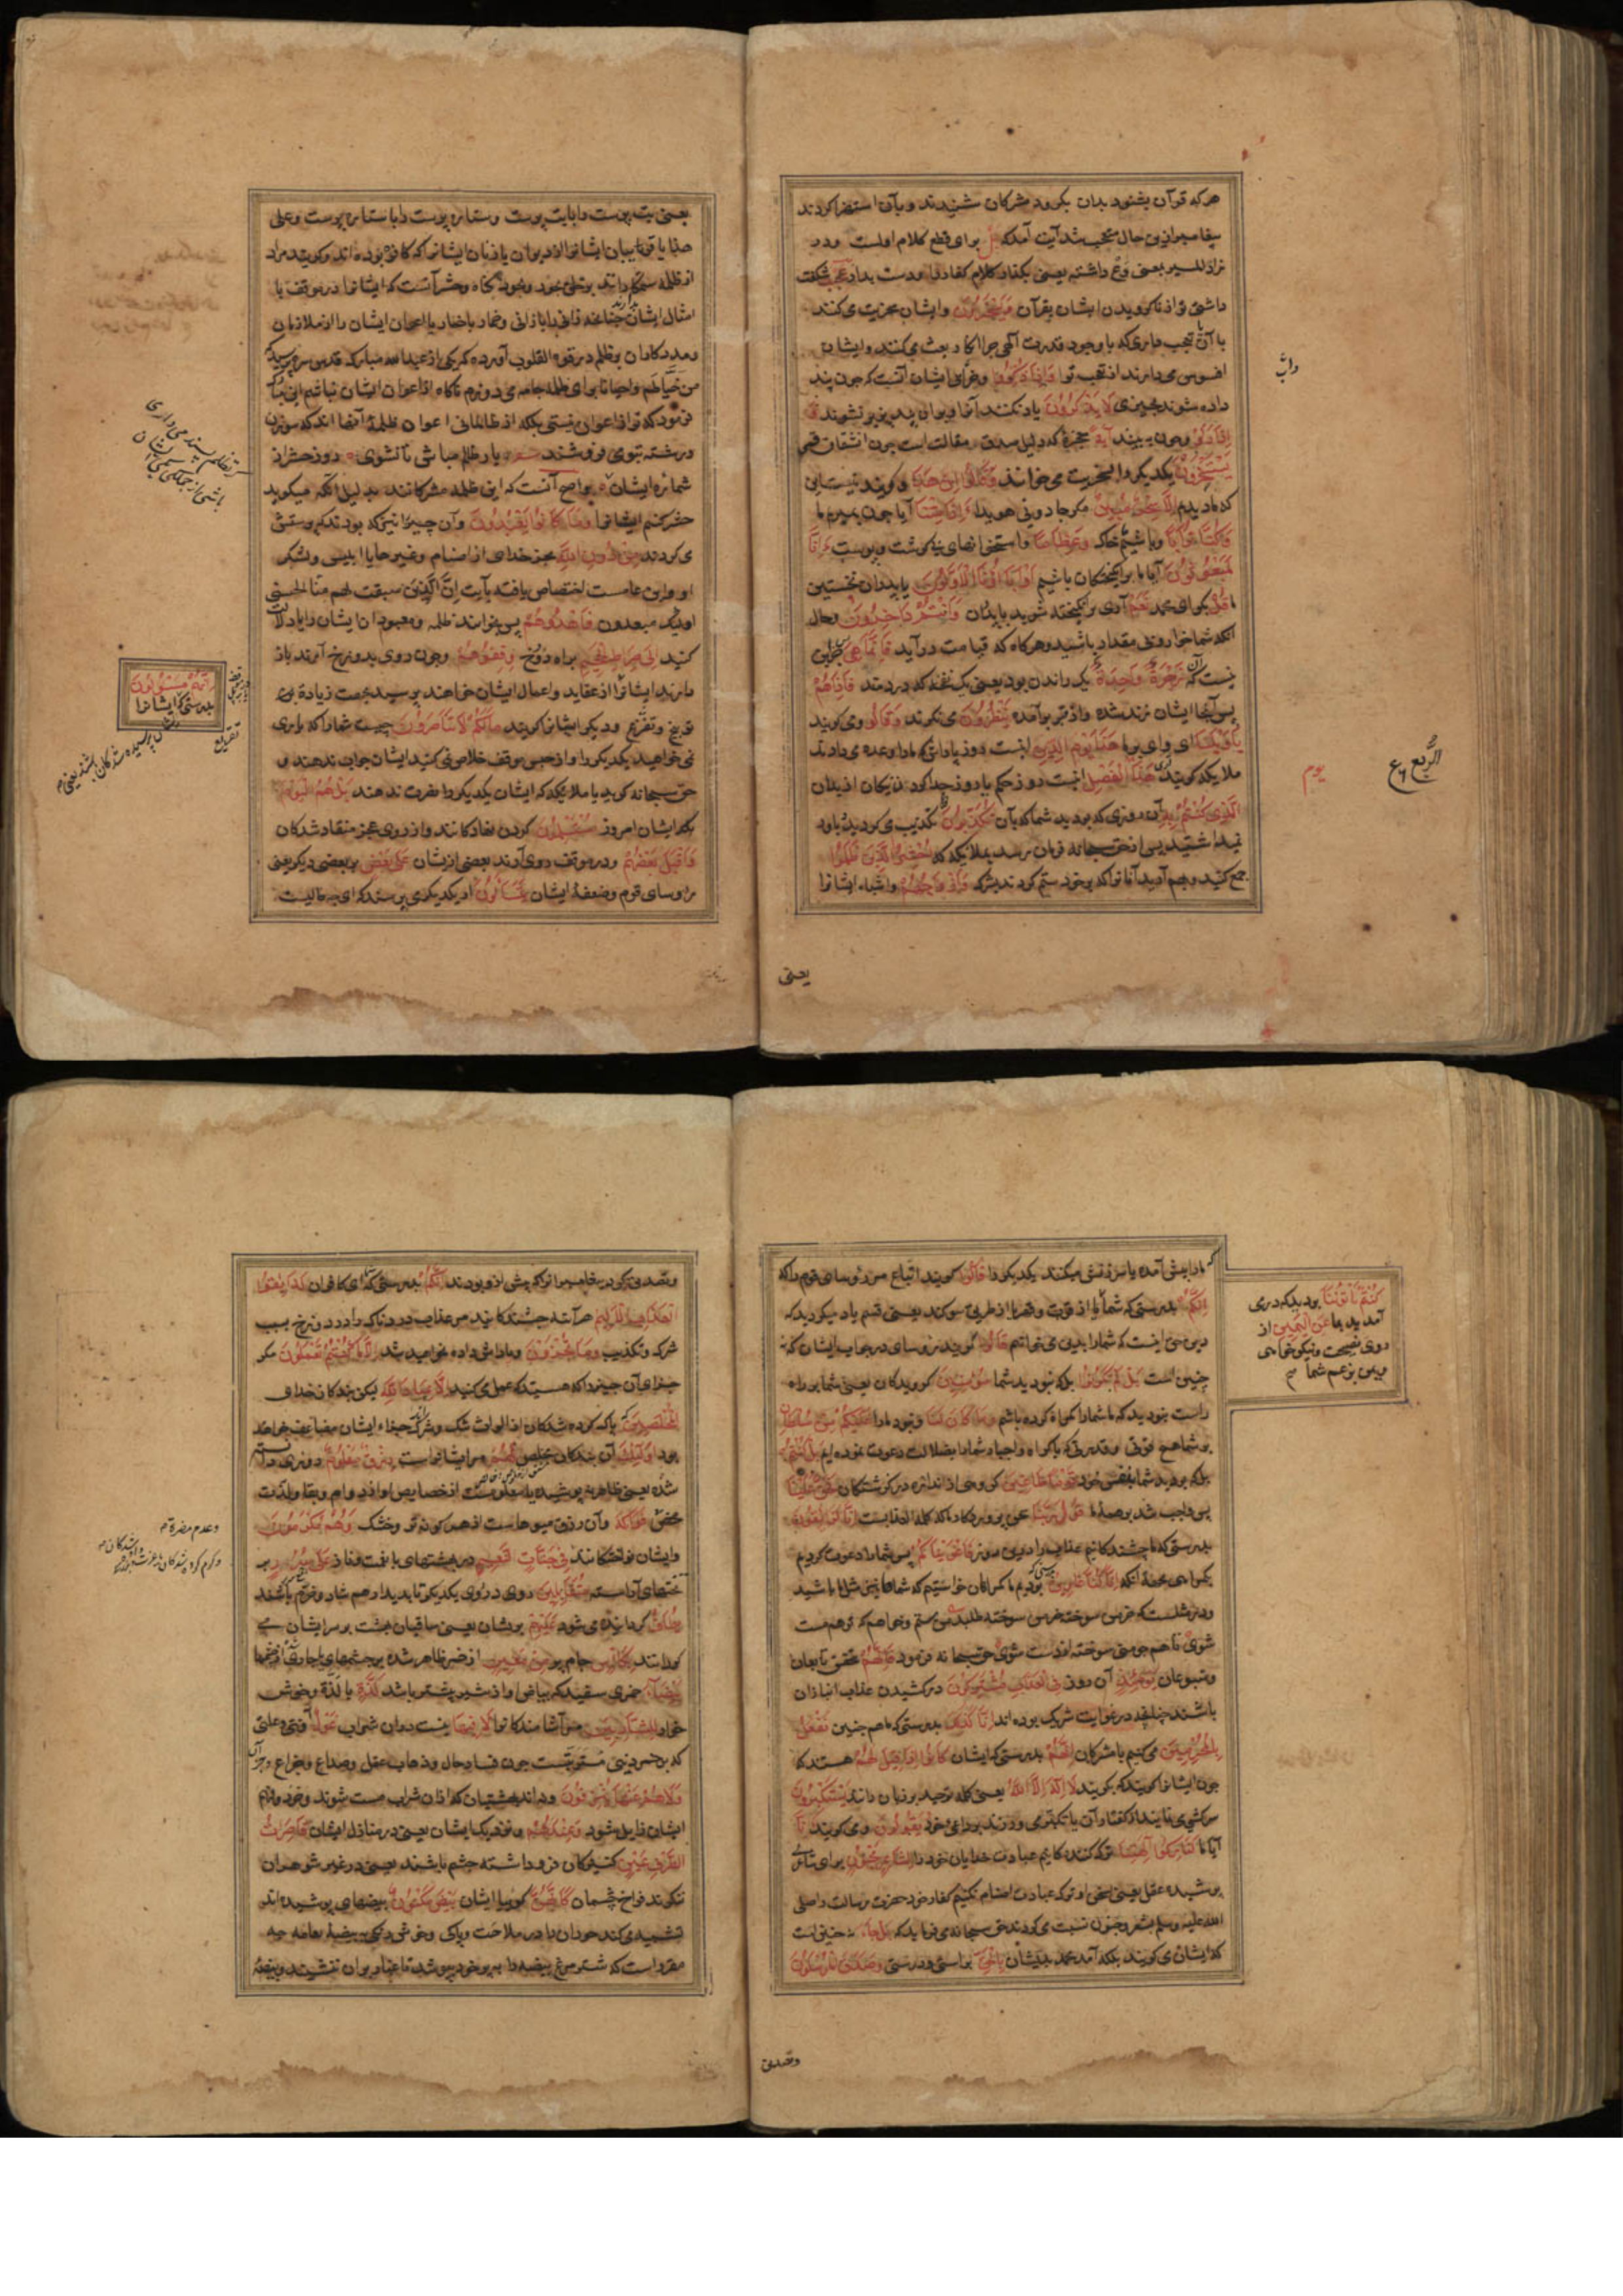 هر که قرآن بشنود بدان بگرود مشرکان شنیدند و بآن استهزا کردند
پیغامبر ازین حال متعجب شد آیت آمد که بل برای قطع کلام اولست
داشتی تو از ناکرویدن ایشان بقرآن وَيَسْخَرُونَ و ایشان سخریت می کنند
با آن تعجب داری که با وجود قدرت الهی چرا انکار بعث می کنند و ایشان
افسوس می دارند از تعجب تو وَإِذَا ذُكِّرُوا و خوی ایشان آنست که چون پند
داده شوند بچیزی لَا يَذْكُرُونَ یاد نکنند آنرا و بدان پند پذیر نشوند وَ
إِذَا رَأَوْا و چون به بینند آيَةً معجزۀ که دلیل صدق مقالت است چون انشقاق قمر
يَسْتَسْخِرُونَ یکدیگر را بسخریت می خوانند وَقَالُوا إِنْ هَذَا و گویند نیست این
که ما دیدیم إِلَّا سِحْرٌ مُبِينٌ مگر جادویی هویدا ءَإِذَا مِتْنَا آیا چون بمیریم ما
وَكُنَّا تُرَابًا و باشیم خاک وَعِظَامًا و استخوانهای بی گوشت و پوست ءَإِنَّا
لَمَبْعُوثُونَ آیا ما برانگیختگان باشیم أَوَآبَاؤُنَا الْأَوَّلُونَ یا پدران نخستین
ما قُلْ بگو ای محمد نَعَمْ آری برانگیخته شوید با پدران وَأَنْتُمْ دَاخِرُونَ و حال
آنکه شما خوار و بی مقدار باشید و هرگاه که قیامت در آید فَإِنَّمَا هِيَ پس جز این
نیست که آن زَجْرَةٌ وَاحِدَةٌ یک راندن بود یعنی یک نفخه که در دمند فَإِذَا هُمْ
پس آنجا ایشان زنده شده و از قبر برآمده يَنْظُرُونَ می نگرند وَقَالُوا و می گویند
يَا وَيْلَنَا ای وای بر ما هَذَا يَوْمُ الدِّينِ اینست روز پاداش که ما را وعده می دادند
ملایکه گویند آری هَذَا يَوْمُ الْفَصْلِ اینست روز حکم یا روز جدا کردن نیکان از بدان
الَّذِي كُنْتُمْ بِهِ آن روزی که بودید شما که بآن تُكَذِّبُونَ تکذیب می کردید و باور
نمیداشتید پس از حق سبحانه فرمان رسد بملایکه که احْشُرُوا الَّذِينَ ظَلَمُوا
جمع کنید و بهم آرید آنانرا که بر خود ستم کردند بشرک وَأَزْوَاجَهُمْ و اشباه ایشانرا
یعنی
الرُّبع
یوم
یعنی بت پرست را با بت پرست و ستاره پرست را با ستاره پرست و علی
هذا یا قرینان ایشانرا از دیوان یا زنان ایشانرا که کافره بوده اند و گویند مراد
از ظلمه ستمکارانند بر خلق خود وجود گناه و حشر آنست که ایشانرا در موقف با
امثال ایشان بدارند چنانچه زانی را با زانی و خمار با خمار یا اعوان ایشان را از ملازمان
و مددکاران بر ظلم در قوت القلوب آورده که یکی از عبدالله مبارک قدس سره پرسید که
من خیاطم و احیانا برای ظلمه جامه می دوزم ناگاه از اعوان ایشان نباشم ابن مبارک
فرمود که تو از اعوان نیستی بلکه از ظالمانی اعوان ظلمه آنها اند که سوزن
و رشته بتو می فروشند شعر یار ظالم مباش تا نشوی روز حشر از
شمارۀ ایشان و اصح آنست که این ظلمه مشرکانند بدلیل آنکه میگوید
حشر کنید ایشانرا وَمَا كَانُوا يَعْبُدُونَ و آن چیزها نیز که بودند که پرستش
می کردند مِنْ دُونِ اللَّهِ بجز خدای از اصنام و غیرها یا ابلیس و لشکر
او و این عامست اختصاص یافته بآیت إِنَّ الَّذِينَ سبقت لهم منا الحسنی
اولئک مبعدون فَاهْدُوهُمْ پس بخوانید ظلمه و معبودان ایشان را یا دلالت
کنید إِلَى صِرَاطِ الْجَحِيمِ براه دوزخ وَقِفُوهُمْ و چون روی بدوزخ آرند باز
دارید ایشانرا از عقاید و اعمال ایشان خواهند پرسید بجهت زیادۀ
توبیخ و تقریع و دیگر ایشانرا گویند مَا لَكُمْ لَا تَنَاصَرُونَ چیست شما را که یاری
نمی خواهید یکدیگر را و از حبس موقف خلاص نمی کنید ایشان جواب ندهند و
حق سبحانه گوید یا ملایکه که ایشان یکدیگر را نصرت ندهند بَلْ هُمُ الْيَوْمَ
بلکه ایشان امروز مُسْتَسْلِمُونَ گردن نهادگانند و از روی عجز منقاد شدگان
وَأَقْبَلَ بَعْضُهُمْ و در موقف روی آرند بعضی از ایشان عَلَى بَعْضٍ بر بعضی دیگر یعنی
رؤسای قوم و ضعفۀ ایشان يَتَسَاءَلُونَ از یکدیگر می پرسند که این چه حالیست
گر ز ظلم بپسند می داری
باشی از جملگی ایشان
إِنَّهُمْ مَسْئُولُونَ
بدرستی که ایشانرا
تقریع
که ما را پیش آمده یا سرزنش میکنند یکدیگر را قَالُوا گویند اتباع مر رؤسای قوم را که
إِنَّكُمْ بدرستی که شما ما را از قوت و قهر یا از طریق سوگند یعنی قسم یاد میکردید که
دین حق اینست که شما را بدین می خوانیم قَالُوا گویند رؤسای در جواب ایشان که نه
چنین است بَلْ لَمْ تَكُونُوا بلکه نبودید شما مُؤْمِنِينَ گرویدگان یعنی شما بر راه
راست نبودید که ما شما را گمراه کرده باشیم وَمَا كَانَ لَنَا و نبود ما را عَلَيْكُمْ مِنْ سُلْطَانٍ
بر شما هیچ قوتی و قدرتی که باکراه و اجبار شما را بضلالت دعوت نموده ایم بَلْ كُنْتُمْ
بلکه بودید شما بنفس خود قَوْمًا طَاغِينَ گروهی از اندازه درگذشتگان فَحَقَّ عَلَيْنَا
پس واجب شد بر همۀ ما قَوْلُ رَبِّنَا سخن پروردگار ما که کلمه العذابست إِنَّا لَذَائِقُونَ
بدرستی که ما چشندگانیم عذاب را درین روز فَأَغْوَيْنَاكُمْ پس شما را دعوت کردیم
بگمراهی بجهة آنکه إِنَّا كُنَّا غَاوِينَ بدرستی که بودیم ما گمراهان خواستیم که شما نیز مثل ما باشید
و در مثلست که خرمن سوخته خرمن سوخته طلبد من مستم و خواهم که تو هم مست
شوی تا هم چو منی سوخته از دست شوی حق سبحانه فرمود فَإِنَّهُمْ بتحقیق تابعان
و متبوعان يَوْمَئِذٍ آن روز فِي الْعَذَابِ مُشْتَرِكُونَ در کشیدن عذاب انبازان
باشند چنانچه در غوایت شریک بوده اند إِنَّا كَذَلِكَ بدرستی که ما هم چنین نَفْعَلُ
بِالْمُجْرِمِينَ می کنیم با مشرکان إِنَّهُمْ بدرستی که ایشان كَانُوا إِذَا قِيلَ لَهُمْ هستند که
چون ایشانرا گویند که بگویید لَا إِلَهَ إِلَّا اللَّهُ یعنی کلمه توحید بر زبان رانید يَسْتَكْبِرُونَ
سرکشی می نمایند از گفتار آن یا تکبر می ورزند بر داعی خود وَيَقُولُونَ و می گویند أَئِنَّا
آیا ما لَتَارِكُوا آلِهَتِنَا ترک کنندگانیم عبادت خدایان خود را لِشَاعِرٍ مَجْنُونٍ برای شاعری
پوشیده عقل یعنی بسخن او ترک عبادت اصنام نکنیم کفار خود حضرت رسالت را صلی
الله علیه و سلم بشعر و جنون نسبت می کردند حق سبحانه می فرماید که بَلْ جَاءَ نه چنین است
که ایشان می گویند بلکه آمد محمد بدیشان بِالْحَقِّ براستی و درستی وَصَدَّقَ الْمُرْسَلِينَ
كُنْتُمْ تَأْتُونَنَا بودید که در می
آمدید بما عَنِ الْيَمِينِ از
روی نصیحت و نیکو خواهی
و یمن بزعم شما
وتصدیق
و تصدیق کرد پیغامبرانرا که پیش از و بودند إِنَّكُمْ بدرستی که شما ای کافران لَذَائِقُوا
الْعَذَابِ الْأَلِيمِ هر آینه چشندگانید مر عذاب دردناک را در دوزخ بسبب
شرک و تکذیب وَمَا تُجْزَوْنَ و پاداش داده نخواهید شد إِلَّا مَا كُنْتُمْ تَعْمَلُونَ مگر
جزای آن چیز را که هستید که عمل می کنید إِلَّا عِبَادَ اللَّهِ لیکن بندگان خدای
الْمُخْلَصِينَ پاک کرده شدگان از الواث شک و شرک که جزاء ایشان مضاعف خواهد
بود أُولَئِكَ آن بندگان مخلص لَهُمْ مر ایشانراست رِزْقٌ مَعْلُومٌ روزی دانسته
شده یعنی ظاهر نه پوشیده یا معلومست از خصایص او از دوام و بقا و لذت
محض فَوَاكِهُ و آن رزق میوهاست از هر گونه تر و خشک وَهُمْ مُكْرَمُونَ
و ایشان نواختگانند فِي جَنَّاتِ النَّعِيمِ در بهشتهای با نعمت و ناز عَلَى سُرُرٍ بر
تختهای آراسته مُتَقَابِلِينَ روی در روی یکدیگر تا بدیدار هم شاد و خرم باشند
يُطَافُ گردانیده می شود عَلَيْهِمْ بریشان یعنی ساقیان بهشت بر سر ایشان می
گردانند بِكَأْسٍ جام پر مِنْ مَعِينٍ از خمر ظاهر شده بر چشمها یا جاری از نهرها
بَيْضَاءَ خمری سفید که بیاض او از شیر بیشتر باشد لَذَّةٍ با لذة و خوش
خوار لِلشَّارِبِينَ مر آشامندگانرا لَا فِيهَا نیست در آن شراب غَوْلٌ آفتی و علتی
که بر خمر دنیی مترتبست چون فساد حال و ذهاب عقل و صداع و خمار و جز آن
وَلَا هُمْ عَنْهَا يُنْزَفُونَ و نه اند بهشتیان که از آن شراب مست شوند و خرد و فهم
ایشان زایل شود وَعِنْدَهُمْ و نزدیک ایشان یعنی در منازل ایشان قَاصِرَاتُ
الطَّرْفِ عِينٌ کنیزکان فروداشته چشم باشند یعنی در غیر شوهران
ننگرند فراخ چشمان كَأَنَّهُنَّ گوییا ایشان بَيْضٌ مَكْنُونٌ بیضهای پوشیده اند
تشبیه می کند حوران را در ملاحت و پاکی و خوش رنگی ببیضۀ نعامه چه
مقرر است که شتر مرغ بیضه را بپر خود بپوشد تا غبار بران ننشیند و بیضۀ
و عدم مضرة